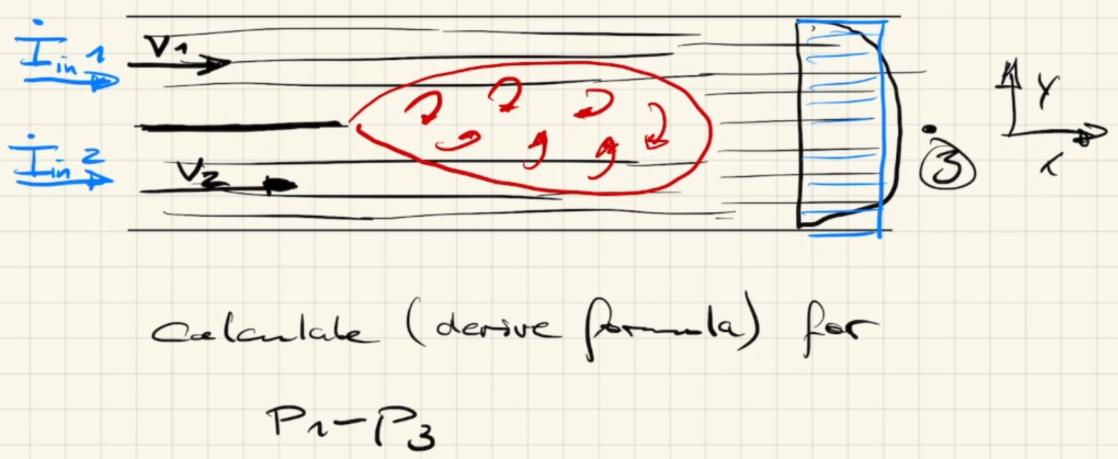 İin 1
V1
İin 2
V2
3
Y
x
Calculate (derive formula) for
P1-P3